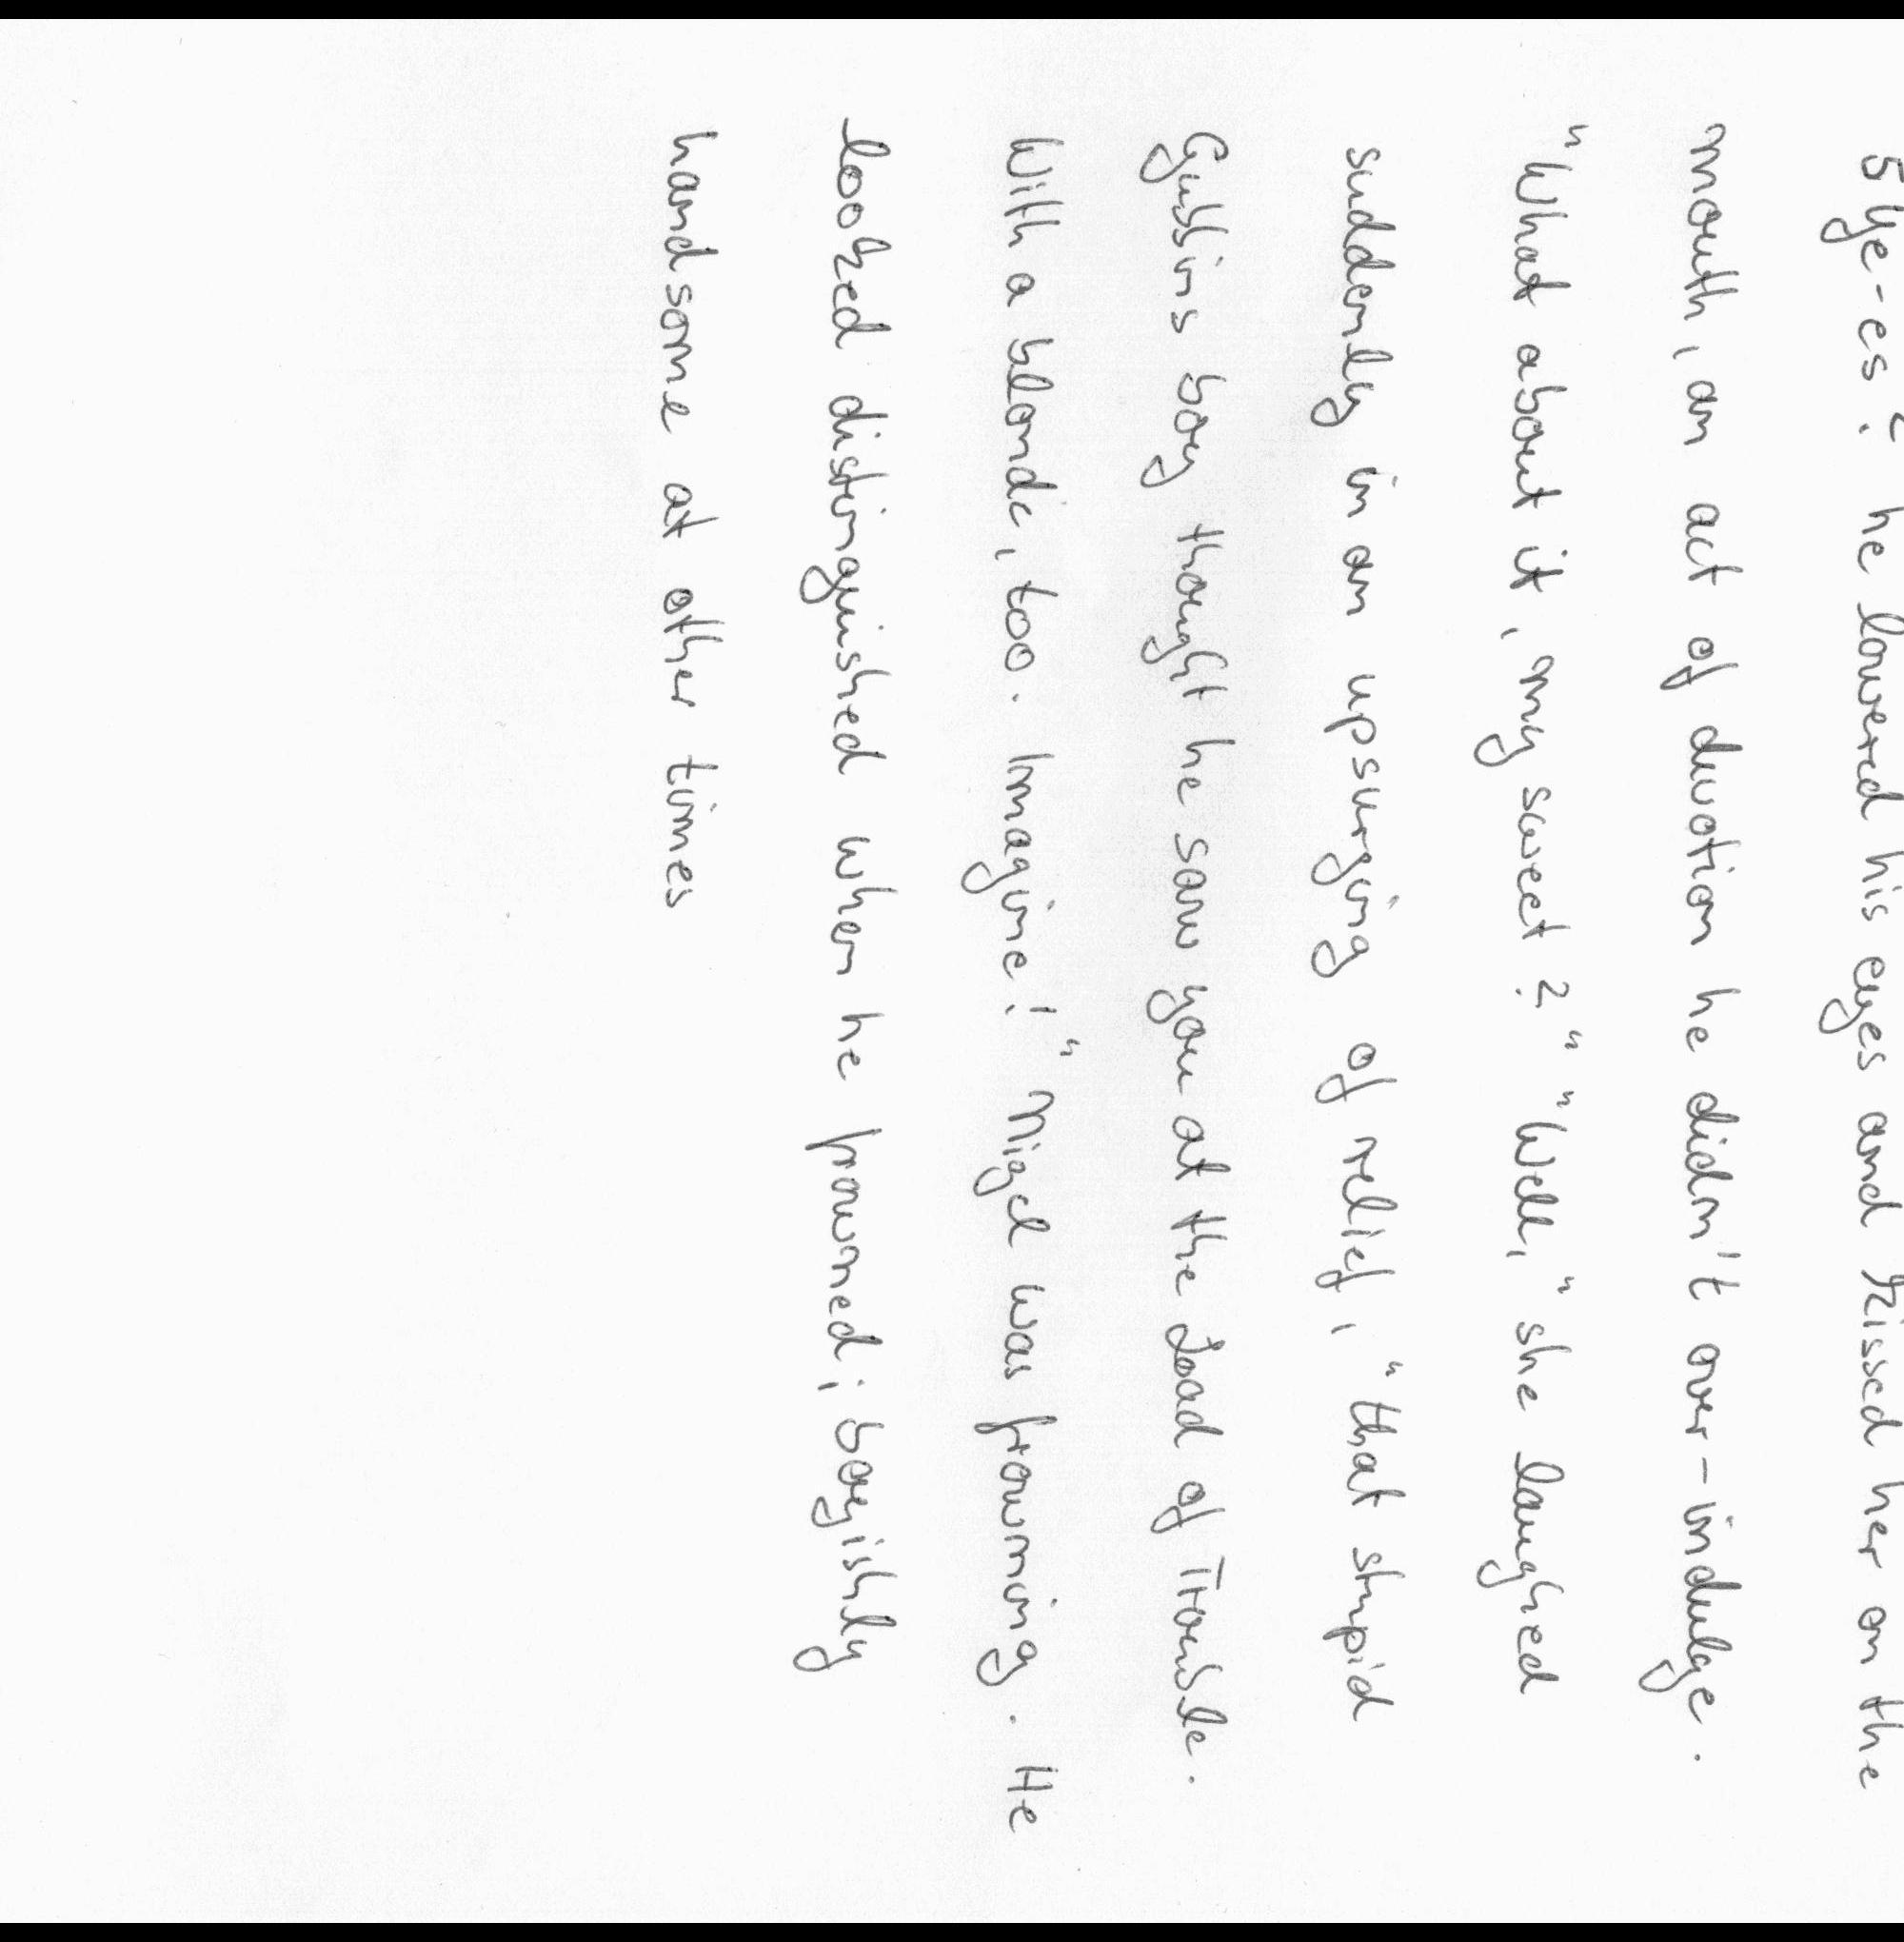 5ye-es? he lowered his eyes and kissed her on the
mouth, an act of devotion he didn't over-indulge.
"What about it, my sweet?" "Well," she laughed
suddenly in an upsurging of relief, "that stupid
Gubbins boy thought he saw you at the Load of Trouble.
With a blonde, too. Imagine!" Nigel was frowning. He
looked distinguished when he frowned; boyishly
handsome at other times